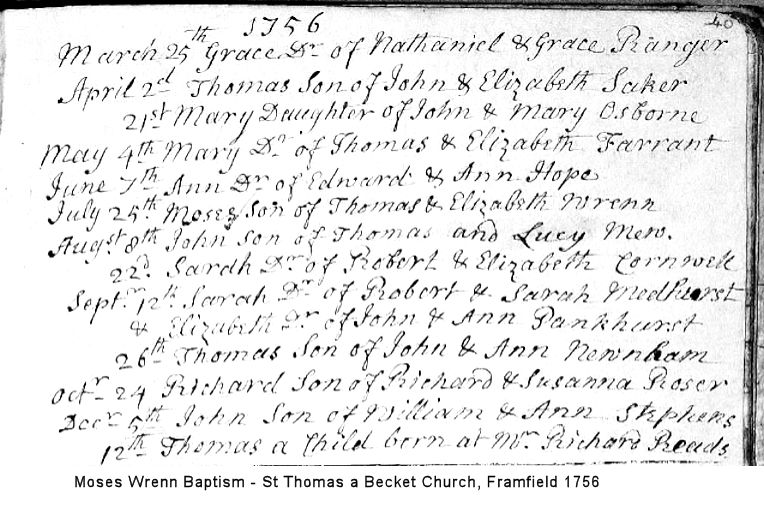 1756
40
March 25th Grace Dr of Nathaniel & Grace Ranger
April 2d Thomas Son of John & Elizabeth Saker
21st Mary Daughter of John & Mary Osborne
May 4th Mary Dr of Thomas & Elizabeth Farrant
June 7th Ann Dr of Edward & Ann Hope
July 25th Moses Son of Thomas & Elizabeth Wrenn
Augst 8th John Son of Thomas and Lucy Mew.
22d Sarah Dr of Robert & Elizabeth Cornwell
Septr 12th Sarah Dr of Robert & Sarah Medhurst
& Elizabeth Dr of John & Ann Pankhurst
26th Thomas Son of John & Ann Newnham
Octr 24 Richard Son of Richard & Susanna Roser
Decr 5th John Son of William & Ann Stephens
12th Thomas a Child born at Mr Richard Reads
Moses Wrenn Baptism - St Thomas a Becket Church, Framfield 1756